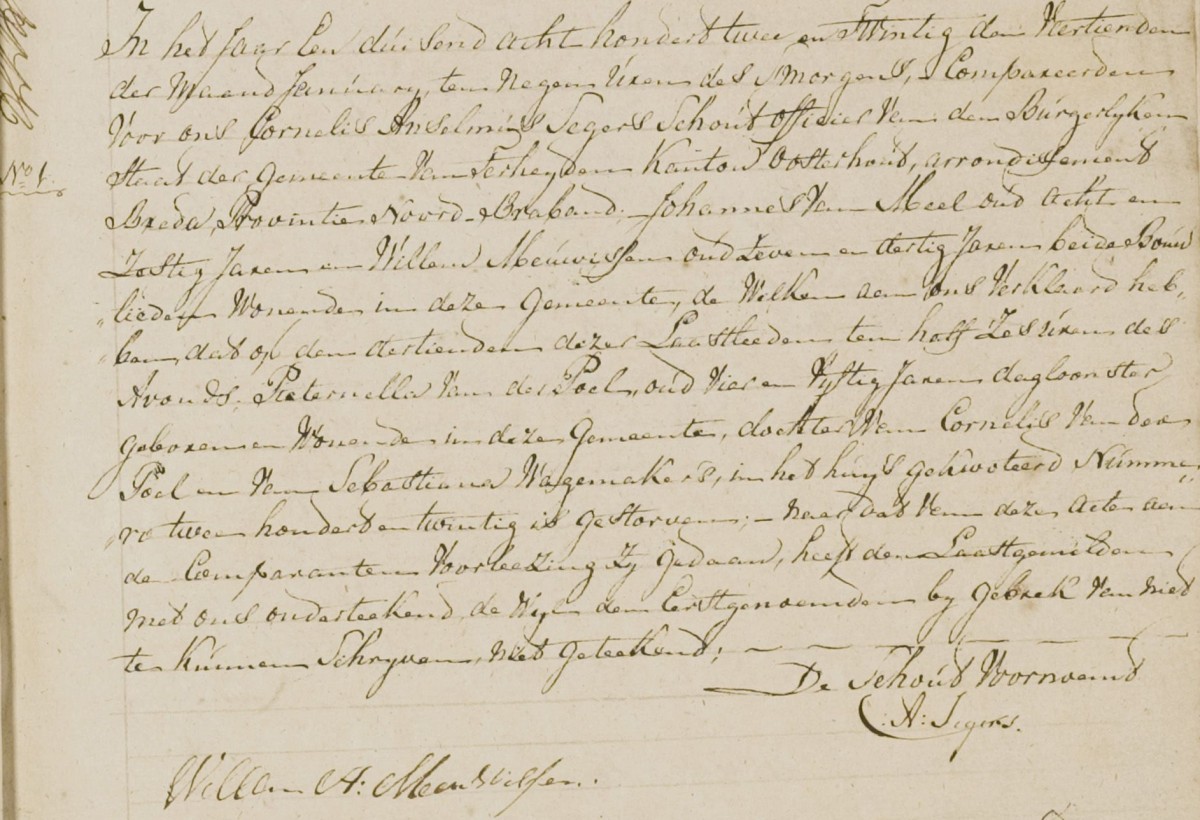 No. 1.
In het Jaar Een duisend acht hondert twee en Twintig den Viertienden
der Maand January, ten Negen Uren des Smorgens, Compareerden
Voor ons Cornelis Anselmus Segers Schout officier Van den Burgerlyken
Staat der Gemeente Van Terheyden Kanton Oosterhout, arrondissement
Breda, Provintie Noord-Braband, Johannes Van Meel oud acht en
Zestig Jaren en Willem Meeuwissen oud Zeven en dertig Jaren beide Bouw
"lieden Wonende in deze Gemeente, de Welken aan ons Verklaard heb"
"ben, dat op den dertienden dezer Laastleeden ten half Zes Uren des
Avonds, Pieternella Van der Poel, oud Vier en Vyftig Jaren dagloonster
geboren en Wonende in deze Gemeente, dochter Van Cornelis Van der
Poel en Van Sebastiana Wagemakers, in het huys gekwoteerd Numme"
"ro twee hondert en twintig is gestorven; - naar dat Van deze acte aan
de Comparanten Voorleezing Zy gedaan, heeft den Laastgemelden
met ons onderteekend, de Wyl den Eerstgenoemden by gebrek Van niet
te kunnen Schryven, niet geteekend;
De Schout Voornoemt
C: A: Segers.
Willem A: Meeuwissen.